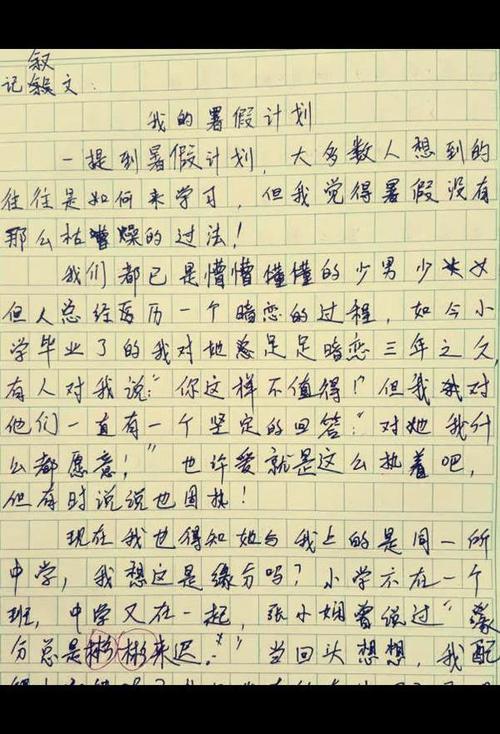 叙
记 文:
我的暑假计划
一提到暑假计划,大多数人想到的
往往是如何来学习,但我觉得暑假没有
那么枯燥的过法!
我们都已是懵懵懂懂的少男少女
但人总经历一个暗恋的过程,如今小
学毕业了的我对她足足暗恋三年之久,
有人对我说:“你这样不值得!”但我对
他们一直有一个坚定的回答:“对她我什
么都愿意!”也许爱就是这么执着吧,
但有时说说也固执!
现在我也得知她与我上的是同一所
中学,我想这是缘分吗?小学不在一个
班,中学又在一起,张小娴曾说过“缘
分总是彬彬来迟。”当回头想想,我配